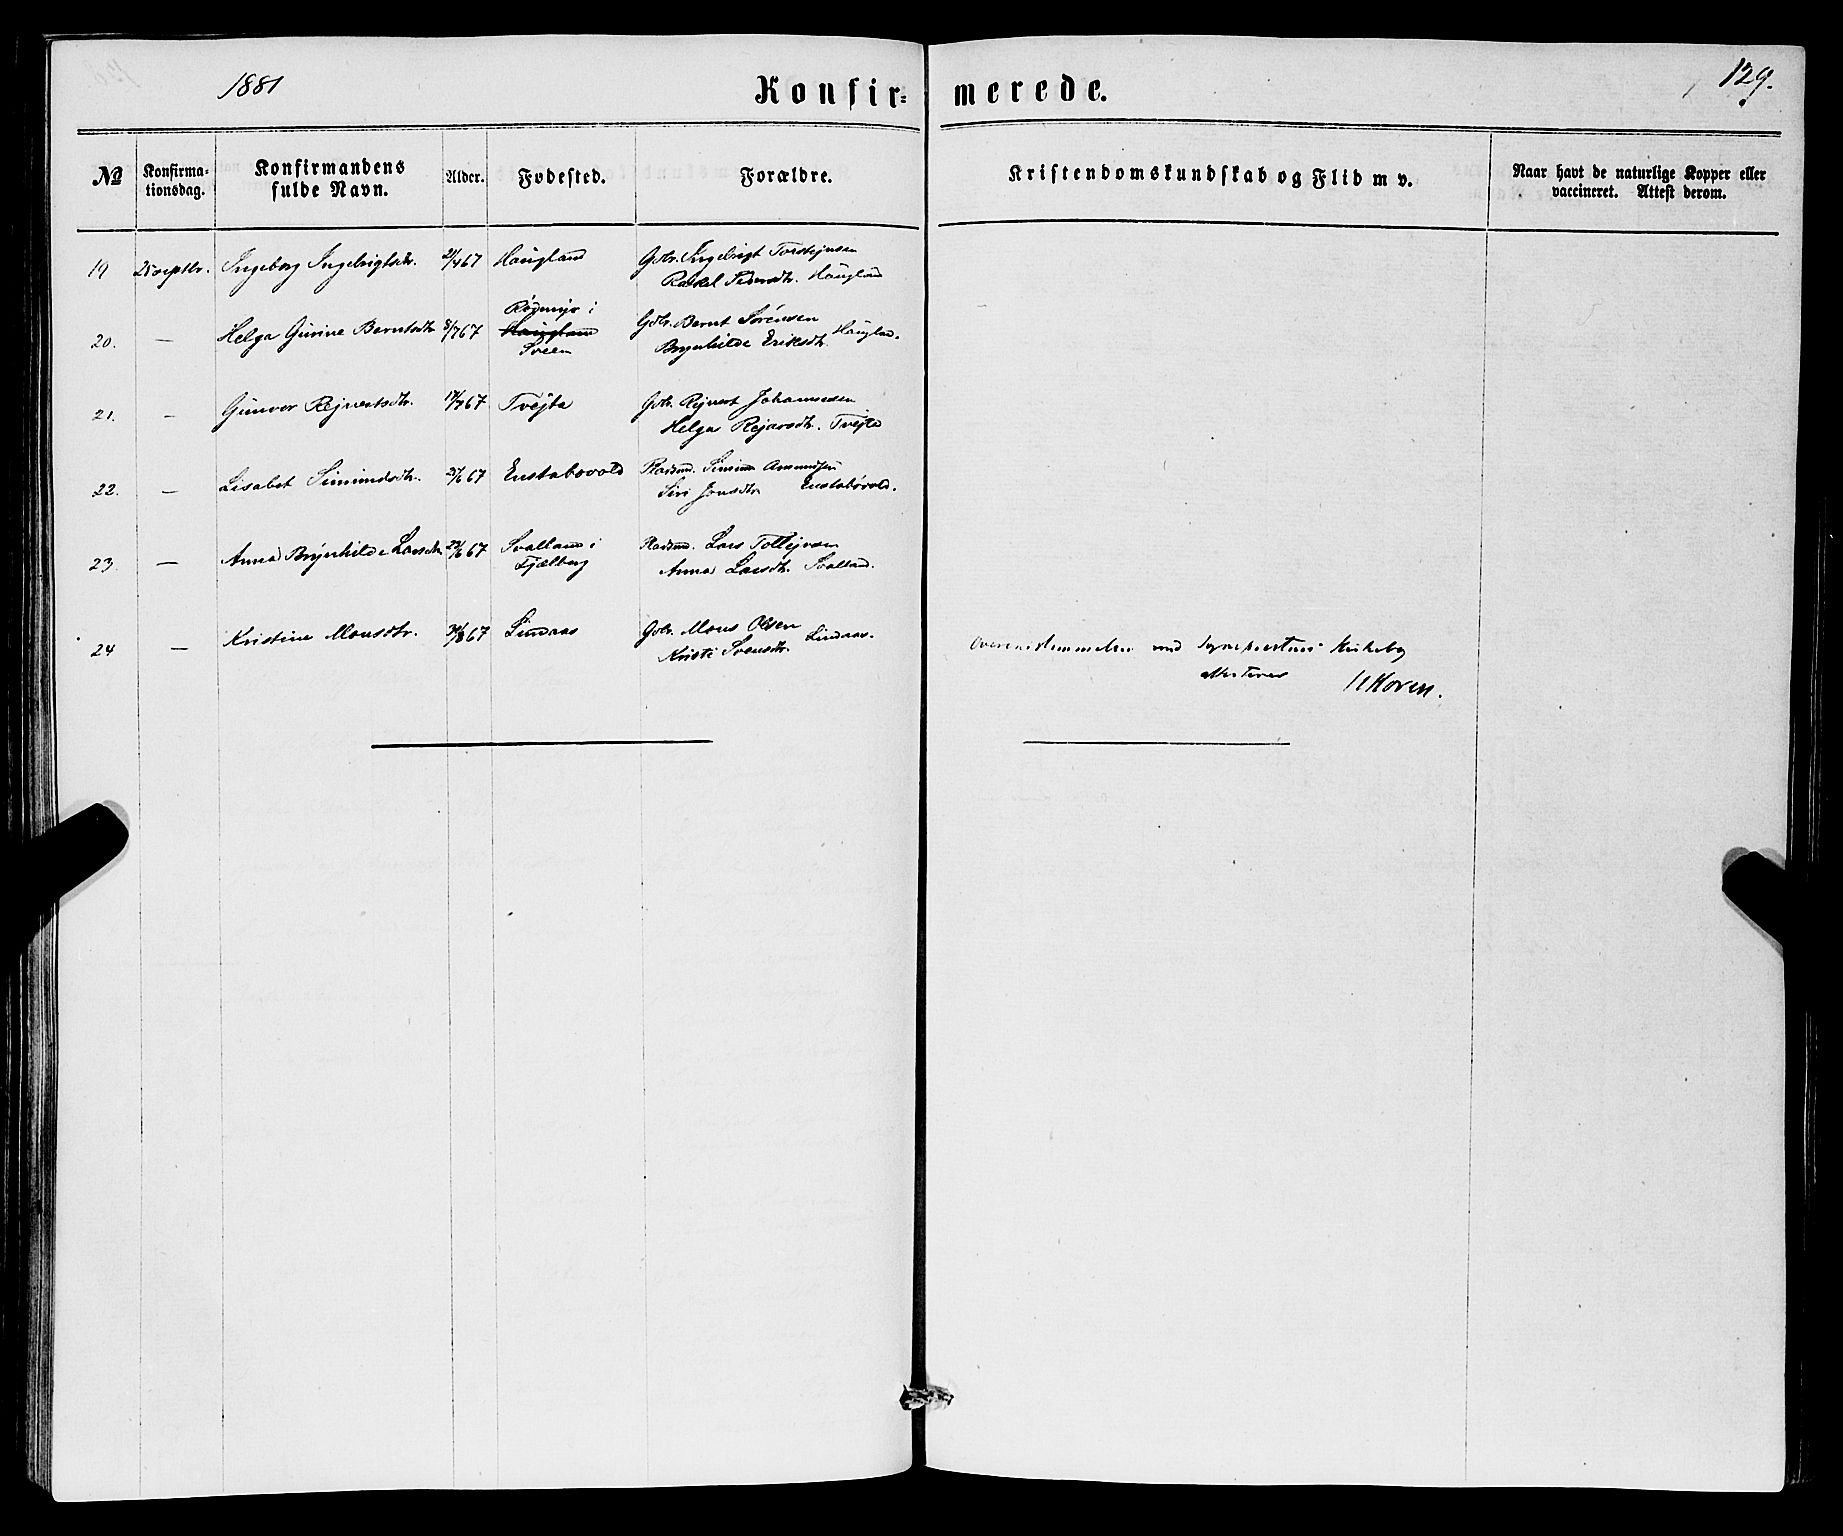 1881
Konfir-
merede.
129.
No
Konfirma-
tionsdag.
Konfirmandens
fulde Navn.
Alder.
Fødested.
Forældre.
Kristendomskundskab og Flid m v.
Naar havt de naturlige Kopper eller
vaccineret. Attest derom.
19 25 septbr. Ingeborg Ingebrigtsdtr. 2/4 67 Haugland Gbr. Ingebrigt Torstejnsen
Rakel Pedersdtr. Haugland
20. — Helga Gurine Berntsdtr 8/7 67 Rødmyr i Haugland Sveen Gbr. Bernt Sørensen
Brynhilde Eriksdtr. Haugland.
21. — Gunvor Rejnertsdtr. 17/7 67 Tvejta Gbr. Rejnert Johannesen
Helga Rejarsdtr. Tvejta
22. — Lisabet Simunsdtr. 67 Enstabovold Pladsmd. Simun Amundsen
Siri Jonsdtr Enstabøvold.
23. — Anna Brynhilde Larsdtr 67 Svalland i Fjælberg Pladsmd. Lars Tollejvsen
Anna Larsdtr. Svalland.
24 — Kristine Monsdtr. 67 Lindaas Gbr. Mons Olsen
Kristi Svensdtr. Lindaas.
Overensstemmelsen med Kirkebog
attesteres